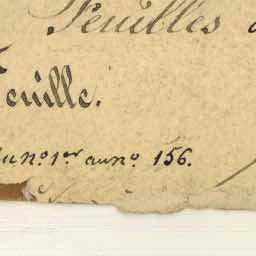 Feuilles
Feuille.
du no. 1er au no. 156.